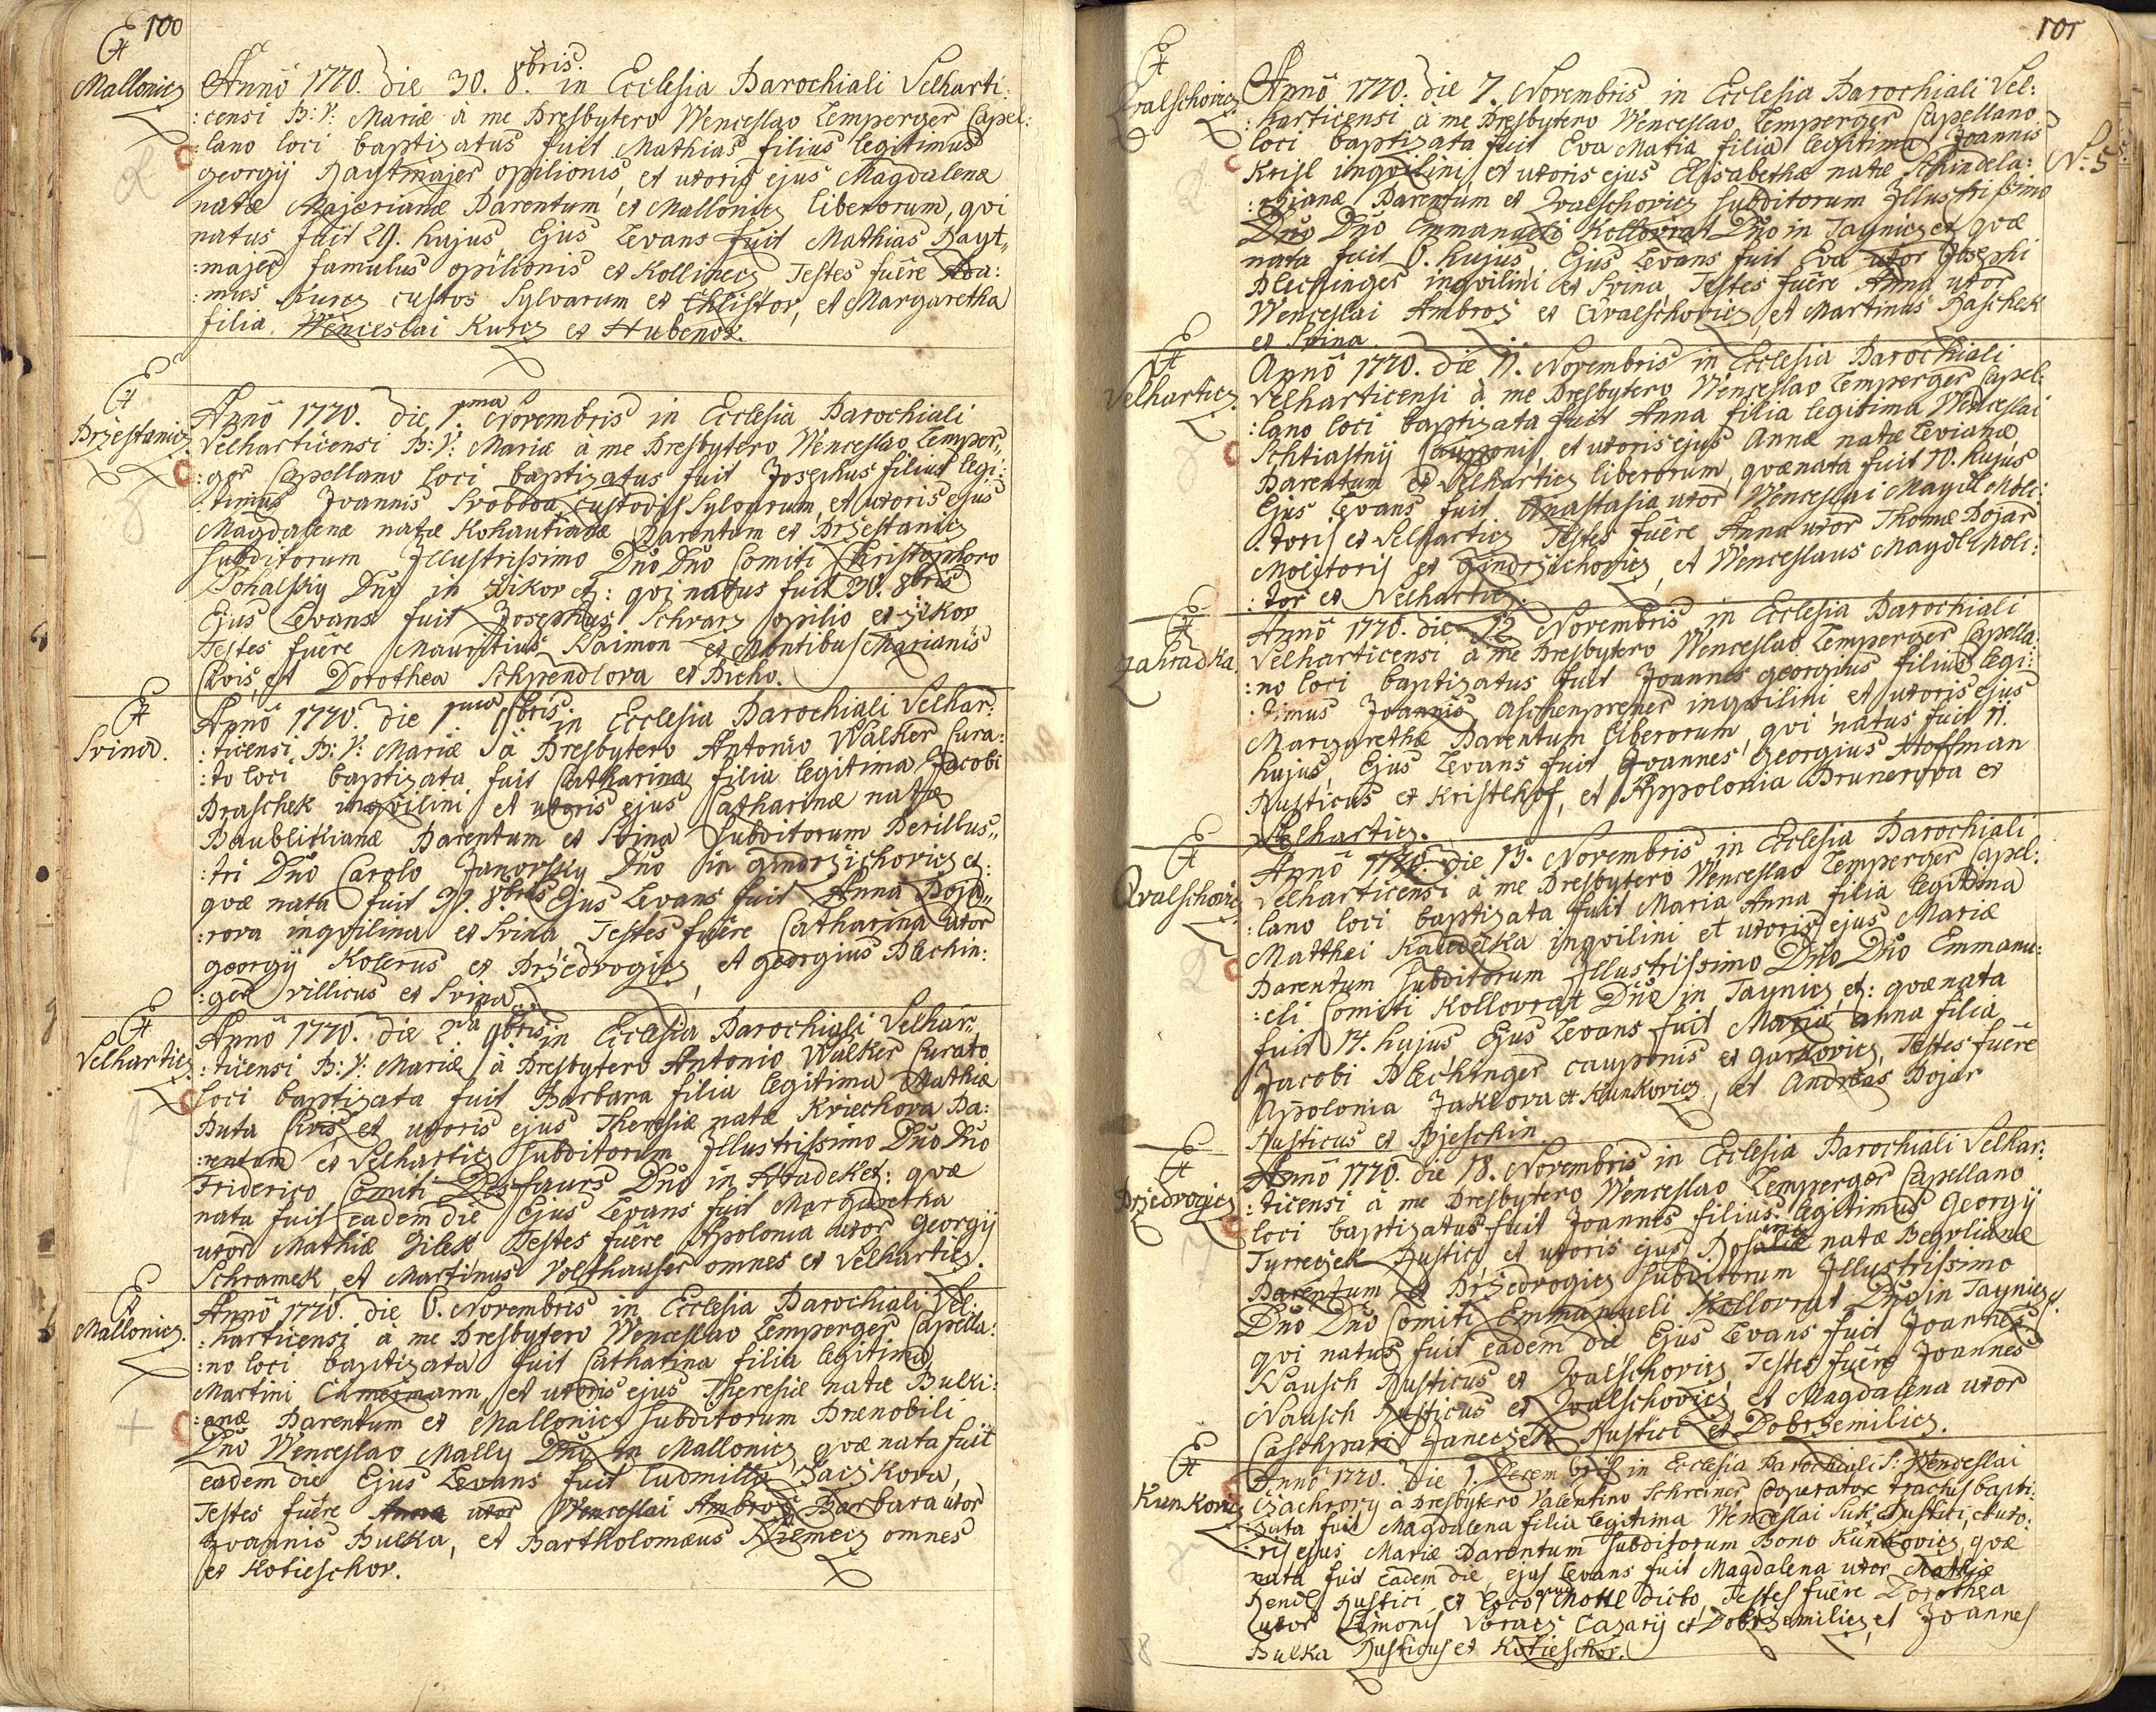 100
Et Mallonicz
Anno 1770. die 30. 8bris. in Ecclesia Parochiali Velharti:
:censi B: V: Mariæ à me Presbytero Wenceslao Zemperger Capel:
:lano loci baptizatus fuit Mathias filius legitimus
Georgij Raytmajer opilionis, et uxoris ejus Magdalenæ
natæ Majerianæ Parentum ex Mallonicz liberorum, qvi
natus fuit 29. hujus, Ejus Levans fuit Mathias Rayt„
:majer famulus opilionis ex Kollinecz, Testes fuêre
:mus Kurcz custos Sylvarum ex Chlistov, et Margaretha
filia Wenceslai Kurcz ex Hubenov.
Et Przestanicz
Anno 1770. die 1ma Novembris in Ecclesia Parochiali
Velharticensi B: V: Mariæ à me Presbytero Wenceslao Zemper„
:ger Capellano loci baptizatus fuit Josephus filius legi:
:timus Joannis Svoboda, custodis Sylvarum, et uxoris ejus
Magdalenæ natæ Kohautianæ Parentum ex Przestanicz
subditorum Illustrissimo Dno Dno Comiti Christophoro
Dohalsky Dno in Zikov etz: qvi natus fuit 30. 8bris
Ejus Levans fuit Josephus Schvarz opilio ex Zikov,
Testes fuêre Mauritius Naimon ex Montibus Marianis
Civis, et Dorothea Schpendlova ex Bicho.
Et Svina.
Anno 1770. die 1ma 9bris. in Ecclesia Parochiali Velhar:
:ticensi B: V: Mariæ à Presbytero Antonio Walker Cura:
:to loci baptizata fuit Catharina filia legitima Jacobi
Draschek inqvilini et uxoris ejus Catharinæ natæ
Baublikianæ Parentum ex Svina Subditorum Perillus„
:tri Dno Carolo Janovsky Dno in Gindrzichovicz et:
qvæ nata fuit 8bris Ejus Levans fuit Anna Boja„
:rova inqvilina ex Svina, Testes fuêre Catharina uxor
Georgij Kolerus ex Przedvogicz, et Georgius Plechin:
:ger villicus ex Svina.
Et Velharticz
Anno 1770. die 2da 9bris. in Ecclesia Parochiali Velhar„
:ticensi B: V: Mariæ à Presbytero Antonio Walker Curato
loci baptizata fuit Barbara filia legitima Mathiæ
Buta Civis, et uxoris ejus Theresiæ natæ Kriechova Pa:
:rentum ex Velharticz Subditorum Illustrissimo Dno Dno
Friderico Comiti Desfaurs Dno in Hradek et: qvæ
nata fuit eadem die Ejus Levans fuit Margaretha
uxor Mathiæ Jilek, Testes fuêre Apolonia uxor Georgij
Schramek, et Martinus Volfhauser omnes ex Velharticz.
Et Mallonicz.
Anno 1770. die 6. Novembris in Ecclesia Parochiali Vel:
:harticensi à me Presbytero Wenceslao Zemperger Capella:
:no loci baptizata fuit Catharina filia legitima
Martini Chmeimann, et uxoris ejus Theresiæ natæ Bulki:
:anæ Parentum ex Mallonicz Subditorum Prænobili
Dno Wenceslao Mally Dno in Mallonicz, qvæ nata fuit
eadem die Ejus Levans fuit Ludmilla Saczkova,
Testes fuêre Anna uxor Wenceslai Ambros Barbara uxor
Joannis Bulka, et Bartholomæus Niemecz omnes
ex Kotieschov.
101
Et Qvalschovicz
Anno 1770. die 7. Novembris in Ecclesia Parochiali Vel:
:harticensi à me Presbytero Wenceslao Zemperger Capellano
loci baptizata fuit Eva Maria filia legitima Joannis
N: 5
Krisl inqvilini, et uxoris ejus Elisabethæ natæ Schindela:
:rianæ Parentum ex Qvalschovicz Subditorum Illustrissimo
Dno Dno Emmanueli Kollovrat Dno in Taynicz et: qvæ
nata fuit 6. hujus, Ejus Levans fuit Eva uxor Josephi
Plechinger inqvilini ex Svina, Testes fuêre Anna uxor
Wenceslai Ambros ex Qvalschovicz, et Martinus Paschek
ex Svina.
Et Velharticz.
Anno 1770. die 11. Novembris in Ecclesia Parochiali
Velharticensi à me Presbytero Wenceslao Zemperger Capel:
:lano loci baptizata fuit Anna filia legitima Wenceslai
Schtiastny Cauponis, et uxoris ejus Annæ natæ Levianæ
Parentum ex Velharticz liberorum, qvæ nata fuit 10. hujus
Ejus Levans fuit Anastasia uxor Wenceslai Maydl Moli:
:toris ex Velharticz Testes fuêre Anna uxor Thomæ Bojar
Molitoris ex Gindrzichovicz, et Wenceslaus Maydl Moli:
:tor ex Velharticz.
Et Zahradka
Anno 1770. die 12. Novembris in Ecclesia Parochiali
Velharticensi à me Presbytero Wenceslao Zemperger Capella:
:no loci baptizatus fuit Joannes Georgius filius legi:
:timus Joannis Aschenprener inqvilini et uxoris ejus
Margarethæ Parentum liberorum, qvi natus fuit 11.
hujus, Ejus Levans fuit Joannes Georgius Hoffman
Rusticus ex Kristlhof, et Appolonia Prunerova ex
Velharticz.
Et Qvalschovicz
Anno 1770. die 15. Novembris in Ecclesia Parochiali
Velharticensi à me Presbytero Wenceslao Zemperger Capel:
:lano loci baptizata fuit Maria Anna filia legitima
Matthæi Kavdelka inqvilini et uxoris ejus Mariæ
Parentum Subditorum Illustrissimo Dno Dno Emmanu:
:eli Comiti Kollovrat Dno in Taynicz et: qvæ nata
fuit 14. hujus Ejus Levans fuit Maria Anna filia
Jacobi Plechinger cauponis ex Garkovicz, Testes fuêre
Apolonia Jaklova ex Kunkovicz, et Andreas Bojar
Rusticus ex Bjeschin.
Et Przedvogicz
Anno 1770. die 18. Novembris in Ecclesia Parochiali Velhar:
:ticensi à me Presbytero Wenceslao Zemperger Capellano
loci baptizatus fuit Joannes filius legitimus Georgij
Tyrreczek Rustici, et uxoris ejus natæ Begvlianæ
Parentum ex Przedvogicz Subditorum Illustrissimo
Dno Dno Comiti Emmanueli Kollovrat Dno in Taynicz et:
qvi natus fuit eadem die Ejus Levans fuit Joannes
Nausch Rusticus ex Qvalschovicz Testes fuêre Joannes
Nausch Rusticus ex Qvalschovicz, et Magdalena uxor
Caschpari Janeczek Rustici ex Dobrzemilicz.
Et Kunkovicz
Anno 1770. die 1. Decembris in Ecclesia Parochiali S: Wenceslai
Czachrovy à Presbytero Valentino Schreiner Cooperatore bapti:
:zata fuit Magdalena filia legitima Wenceslai Suk, Rustici, et uxo:
:ris ejus Mariæ Parentum Subditorum Bono Kunkovicz, qvæ
nata fuit eadem die, ejus Levans fuit Magdalena uxor Mathiæ
Rendl Rustici ex loco dicto, Testes fuêre Dorothea
uxor Simonis Voracz Casarij ex Dobrzemilicz, et Joannes
Bulka Rusticus ex Kotieschov.
58